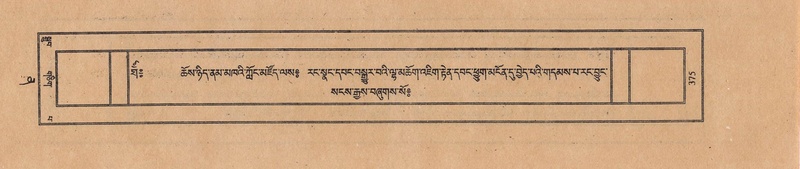 ཧྲཱིཿ ཆོས་ཉིད་ནམ་མཁའི་ཀློང་མཛོད་ལས༔ རང་སྣང་དབང་བསྒྱུར་བའི་ལྷ་མཆོག་འཇིག་རྟེན་དབང་ཕྱུག་མངོན་དུ་བྱེད་པའི་གདམས་པ་རང་བྱུང་
སངས་རྒྱས་བཞུགས་སོ༔
375